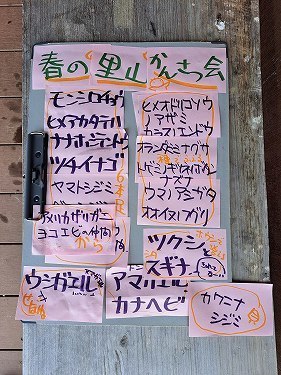 春の里山かんさつ会
モンシロチョウ
ヒメアカタテハ
ナナホシテントウ
ツチイナゴ
ヤマトシジミ
6本足
アメリカザリガニ
ヨコエビの仲間
から
ウシガエル
アマガエル
カナヘビ
ヒメオドリコソウ
ノアザミ
カラスノエンドウ
オランダミミナグサ
トゲミノキツネノボタン
ナズナ
ウマノアシガタ
オオイヌノフグリ
ツクシと
スギナ
カワニナ
シジミ
貝